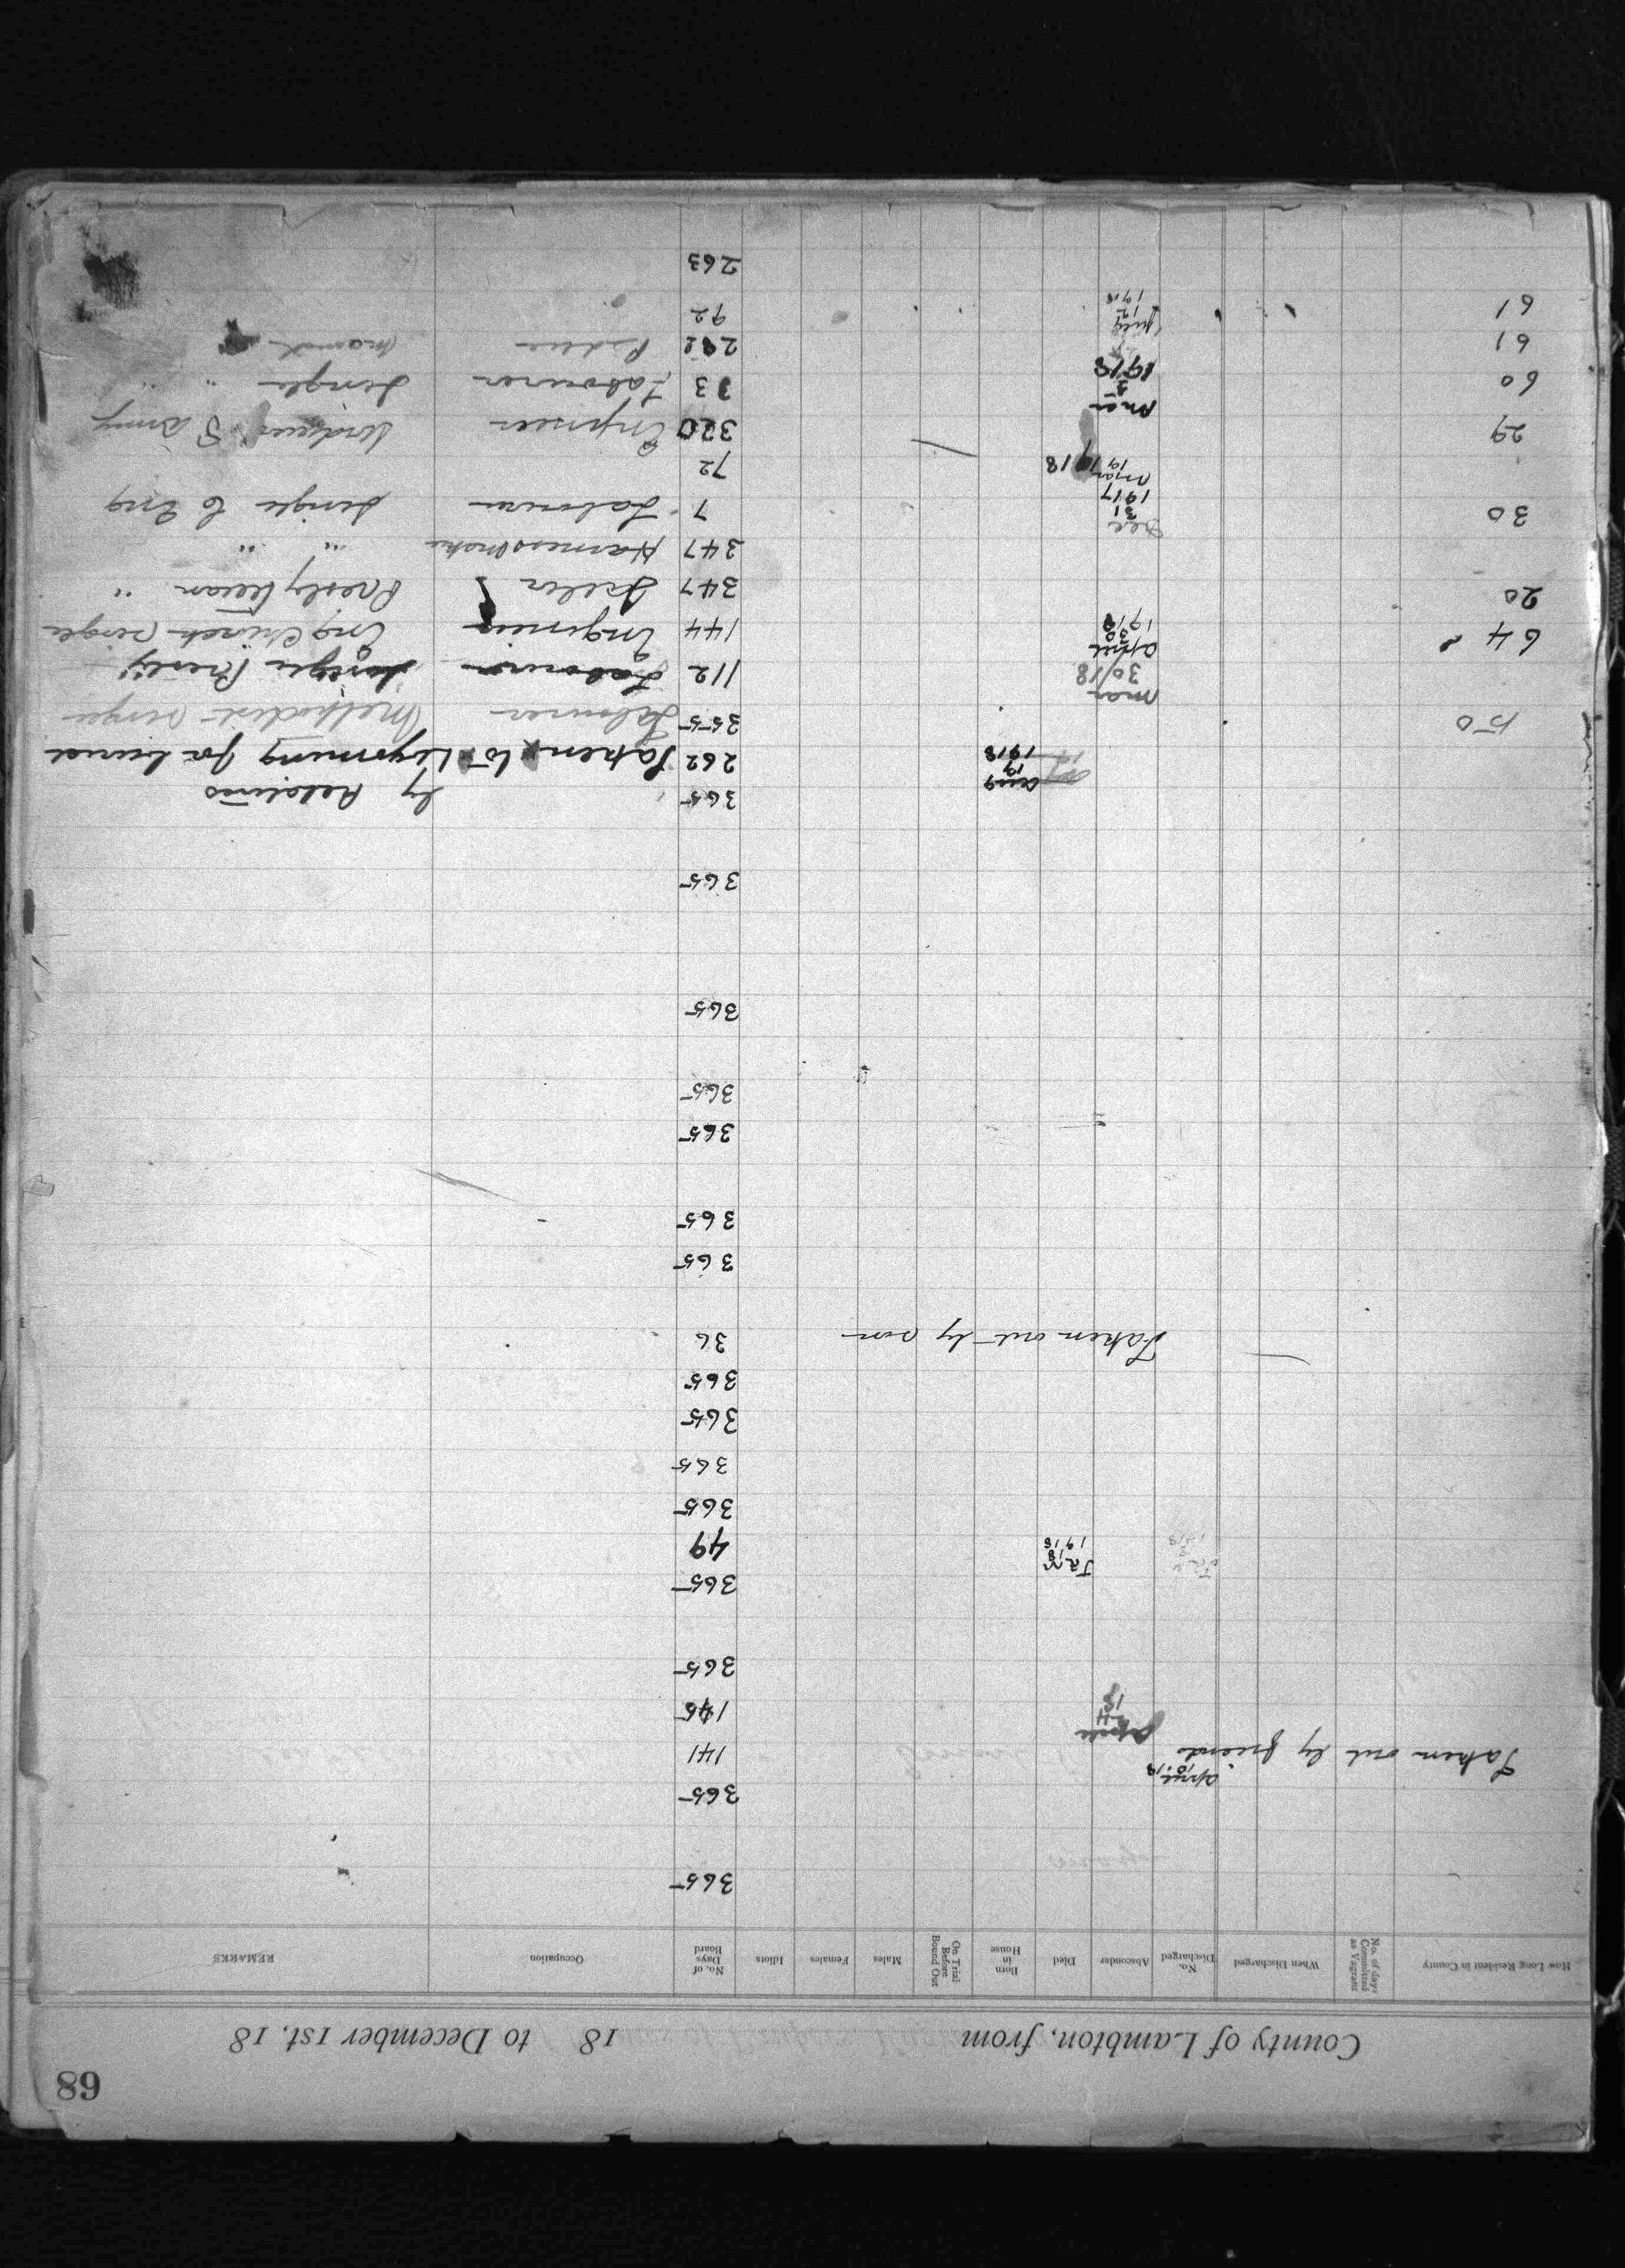 89
County of Lambton, from 18 to December 1st, 18
How Long Resident in County No. of days Committed as Vagrant When Discharged No. Discharged Absconder Died Born in House On Trial Before Bound Out Males Females Idiots No. of Days Board Occupation REMARKS
365
365
Taken out by friends April 141
24 18 145
365
365
Jan 18 1918 49
365
365
365
365
Taken out by son 36
365
365
365
365
365
365
365
Aug 19 1918 262 Taken to Wyoming for burial
by Relatives
150 355 Labourer Methodist single
Mar 30/18 112 Labourer single Presby
64 April 30 1918 144 Engineer Eng Church single
20 347 Presbyterian "
347 Harnessmaker " "
30 Dec 31 1917 7 Labourer single C Eng
Mar 19 1918 72
29 320 Engineer S Army
60 Mar 5 1918 Labourer single " "
61 married
61 July 12 1918 92
263